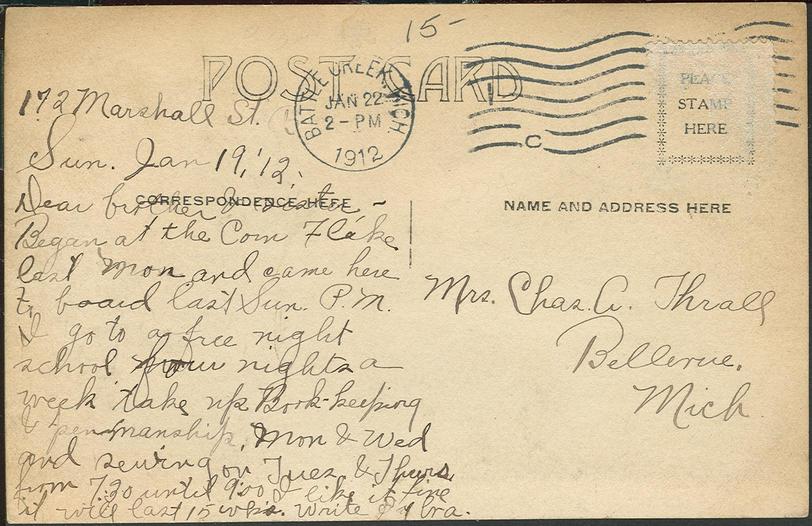 15-
POST CARD
BATTLE CREEK, MICH.
JAN 22
2-PM
1912
C
PLACE
STAMP
HERE
172 Marshall St.
Sun. Jan 19, '12,
CORRESPONDENCE HERE
NAME AND ADDRESS HERE
Dear brother & sister -
Began at the Corn Flake
last Mon and came here
to board last Sun. P.M.
I go to a free night
school four nights a
week take up Book-keeping
& penmanship, Mon & Wed
and sewing on Tues & Thurs,
from 7:30 until 9:00 I like it fine
it will last 15 wks. Write
Mrs. Chas. A. Thrall
Bellevue,
Mich